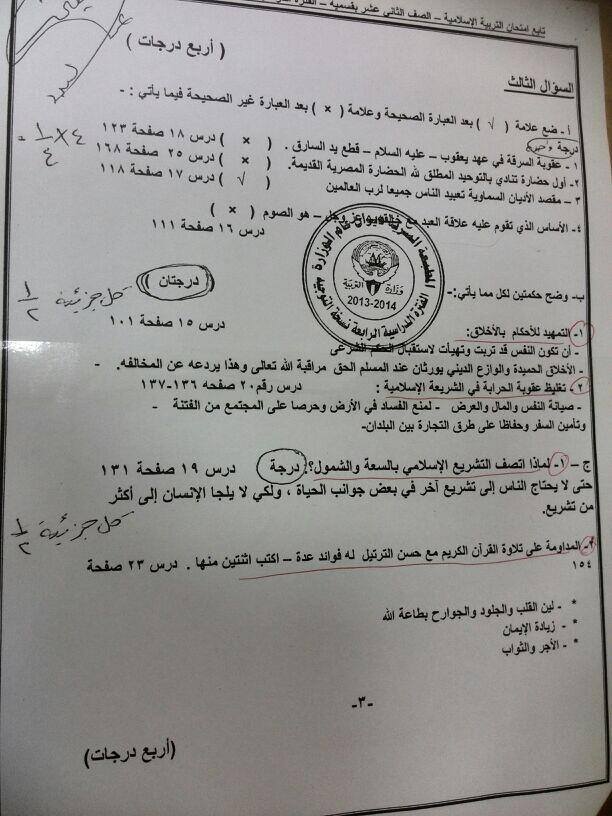 تابع امتحان التربية الإسلامية – الصف الثاني عشر بقسميه – الفترة
( أربع درجات )
السؤال الثالث
أ - ضع علامة ( √ ) بعد العبارة الصحيحة وعلامة ( × ) بعد العبارة غير الصحيحة فيما يأتي : -
درجة واحدة
١ - عقوبة السرقة في عهد يعقوب – عليه السلام – قطع يد السارق . ( × ) درس ١٨ صفحة ١٢٣
٢- أول حضارة تنادي بالتوحيد المطلق لله الحضارة المصرية القديمة. ( × ) درس ٢٥ صفحة ١٦٨
٣ – مقصد الأديان السماوية تعبيد الناس جميعا لرب العالمين ( √ ) درس ١٧ صفحة ١١٨
٤- الأساس الذي تقوم عليه علاقة العبد مع خالقه عز وجل – هو الصوم ( × )
درس ١٦ صفحة ١١١
١/٤ × ٤ =
وزارة التربية
2013-2014
الفترة الدراسية الرابعة نسخة التوجيه
ب- وضح حكمتين لكل مما يأتي:-
( درجتان )
كل جزئية ١/٢
١- التمهيد للأحكام بالأخلاق:
درس ١٥ صفحة ١٠١
- أن تكون النفس قد تربت وتهيأت لاستقبال الحكم الشرعى
- الأخلاق الحميدة والوازع الديني يورثان عند المسلم الحق مراقبة الله تعالى وهذا يردعه عن المخالفه. -
٢- تغليظ عقوبة الحرابة في الشريعة الإسلامية : درس رقم٢٠ صفحه ١٣٦-١٣٧
- صيانة النفس والمال والعرض - لمنع الفساد في الأرض وحرصا على المجتمع من الفتنة -
وتأمين السفر وحفاظا على طرق التجارة بين البلدان-
ج – ١- لماذا اتصف التشريع الإسلامي بالسعة والشمول؟: درجة درس ١٩ صفحة ١٣١
حتى لا يحتاج الناس إلى تشريع آخر في بعض جوانب الحياة ، ولكي لا يلجا الإنسان إلى أكثر
من تشريع.
كل جزئية ١/٢
٢- المداومة على تلاوة القرآن الكريم مع حسن الترتيل له فوائد عدة – اكتب اثنتين منها . درس ٢٣ صفحة
١٥٤
* - لين القلب والجلود والجوارح بطاعة الله
* - زيادة الإيمان
* - الأجر والثواب
-٣-
(أربع درجات)